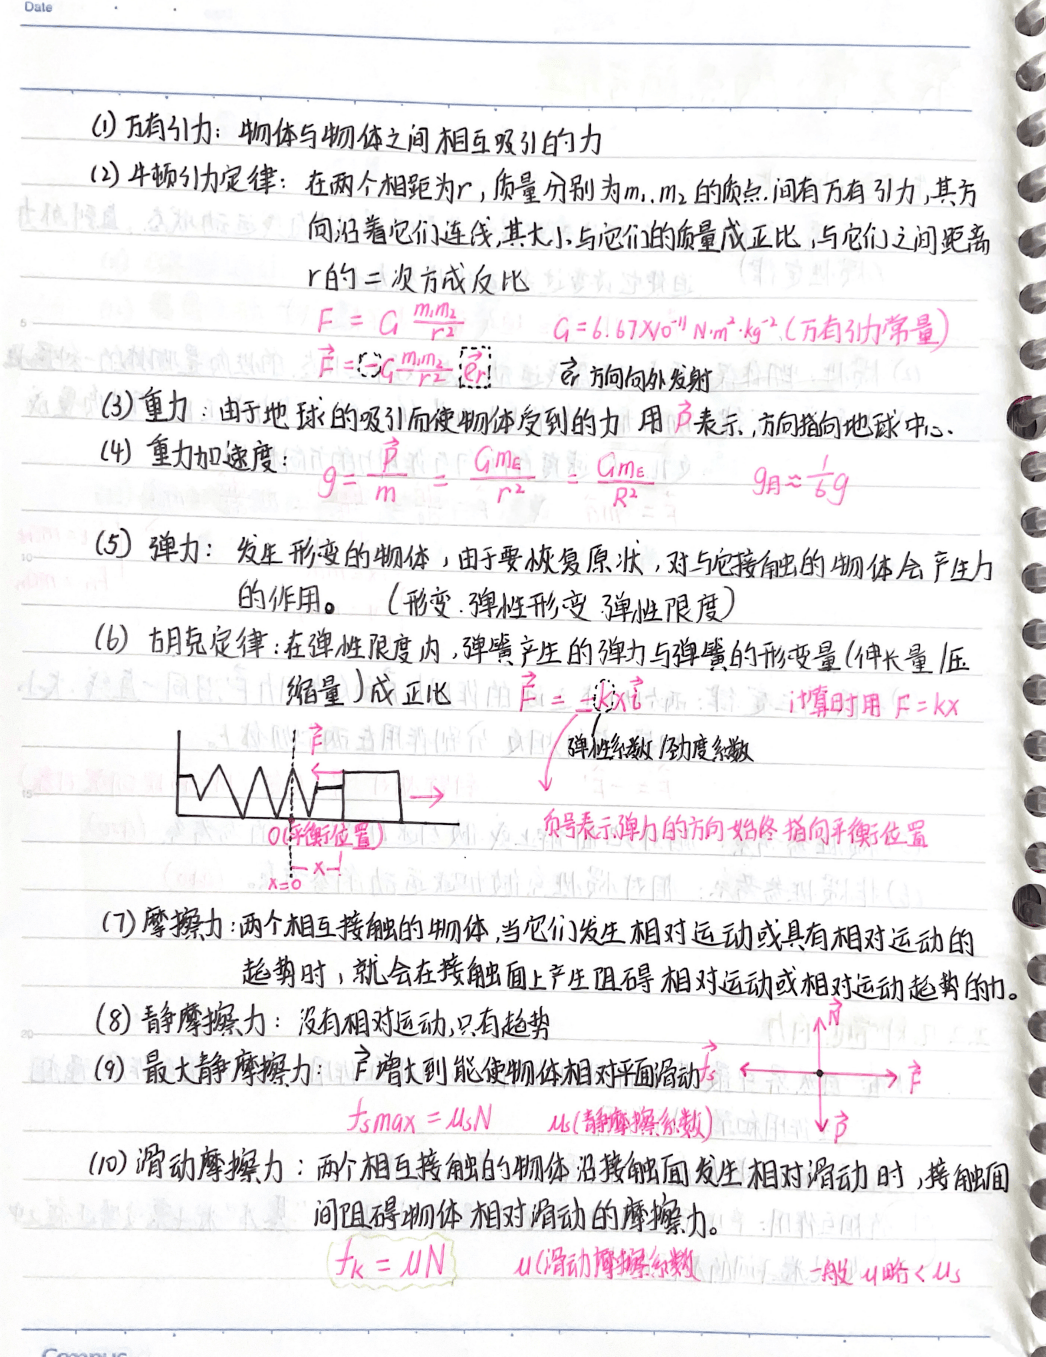 Date
(1) 万有引力：物体与物体之间相互吸引的力
(2) 牛顿引力定律：在两个相距为r，质量分别为m₁、m₂的质点间有万有引力，其方
向沿着它们连线，其大小与它们的质量成正比，与它们之间距离
r的二次方成反比
F = G m₁m₂/r² G=6.67×10⁻¹¹ N·m²·kg⁻² (万有引力常量)
F⃗ = -G m₁m₂/r² e⃗r e⃗r 方向向外发射
(3) 重力：由于地球的吸引而使物体受到的力 用P⃗表示，方向指向地球中心.
(4) 重力加速度：
g = P⃗/m = GmE/r² = GmE/R² g月≈1/6g
(5) 弹力：发生形变的物体，由于要恢复原状，对与它接触的物体会产生力
的作用。 (形变.弹性形变.弹性限度)
(6) 胡克定律：在弹性限度内，弹簧产生的弹力与弹簧的形变量(伸长量/压
缩量)成正比 F⃗ = -kxi⃗ 计算时用 F=kx
弹性系数/劲度系数
F⃗
负号表示弹力的方向始终指向平衡位置
O(平衡位置)
x
x=0
(7) 摩擦力：两个相互接触的物体，当它们发生相对运动或具有相对运动的
趋势时，就会在接触面上产生阻碍相对运动或相对运动趋势的力。
(8) 静摩擦力：没有相对运动，只有趋势
N⃗
(9) 最大静摩擦力：F⃗增大到能使物体相对平面滑动
f⃗s F⃗
P⃗
fsmax = μsN μs(静摩擦系数)
(10) 滑动摩擦力：两个相互接触的物体沿接触面发生相对滑动时，接触面
间阻碍物体相对滑动的摩擦力。
fk = μN μ(滑动摩擦系数) 一般μ略<μs
Campus